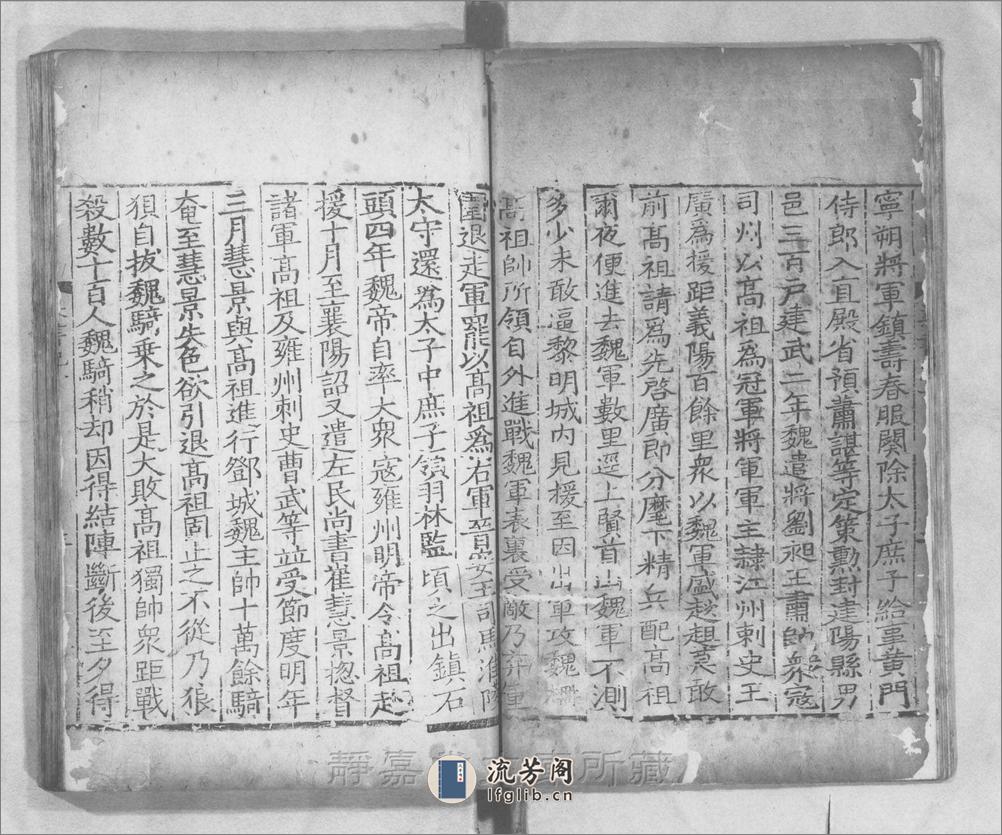 寧朔將軍鎮壽春服闋除太子庶子給事黃門
侍郎入直殿省預蕭諶等定策勳封建陽縣男
邑三百戶建武二年魏遣將劉昶王肅帥衆寇
司州以高祖爲冠軍將軍軍主隸江州刺史王
廣爲援距義陽百餘里衆以魏軍盛趑趄莫敢
前髙祖請爲先啓廣即分麾下精兵配高祖
爾夜便進去魏軍數里逕上賢首山魏軍不測
多少未敢逼黎明城内見援至因出軍攻魏柵
髙祖帥所領自外進戰魏軍表裏受敵乃弃重
圍退走軍罷以髙祖爲右軍晉安王司馬淮陵
太守還爲太子中庶子領羽林監頃之出鎮石
頭四年魏帝自率大衆寇雍州明帝令髙祖赴
援十月至襄陽詔又遣左民尚書崔慧景揔督
諸軍高祖及雍州刺史曹武等並受節度明年
三月慧景與髙祖進行鄧城魏主帥十萬餘騎
奄至慧景失色欲引退高祖固止之不從乃狼
狽自拔魏騎乘之於是大敗髙祖獨帥衆距戰
殺數十百人魏騎稍却因得結陣斷後至夕得
靜嘉堂文庫所藏
流芳阁
lfglib.cn